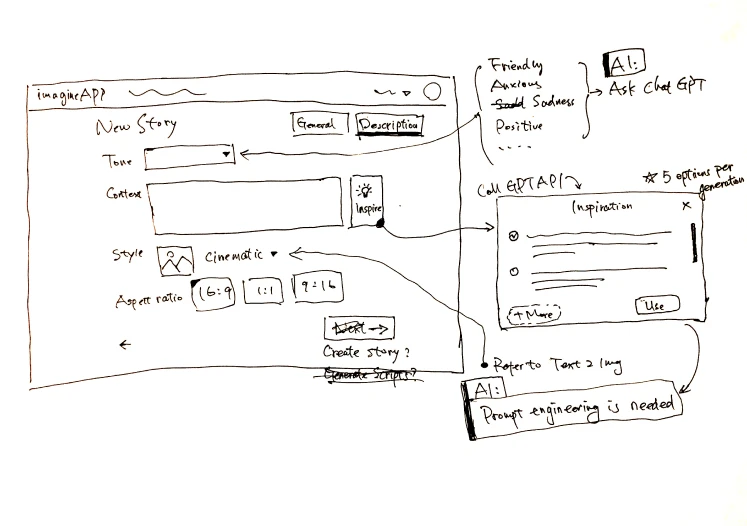 imagineAPP
New Story
General
Description
Tone
Content
Inspire
Style
Cinematic
Aspect ratio
16:9
1:1
9:16
Next →
Create story?
Generate Script?
Friendly
Anxious
Sadness
Positive
....
AI:
Ask Chat GPT
Call GPT API
☆ 5 options per
generation
Inspiration
X
+ More
Use
Refer to Text 2 Img
AI:
Prompt engineering is needed